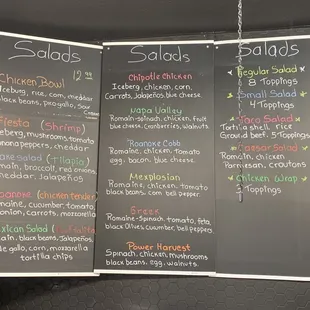 Salads
Chicken Bowl 12.99
Iceburg, rice, corn, cheddar
black beans, pico gallo, sour
Cream
Fiesta (Shrimp)
eburg, mushrooms, tomato
peppers, cheddar
ake salad (+tilapia)
main, broccoli, red onions,
cheddar, Jalapeños
oanoke (chicken tender)
maine, cucumber, tomato,
onion, carrots, mozzarella
xican Salad
main, black beans, Jalapeños
de gallo, corn, mozzarella
tortilla chips
Salads
Chipotle Chicken
Iceberg, chicken, corn,
Carrots, Jalapeños, blue cheese.
Napa Valley
Romaine-spinach, chicken, fruit
blue cheese, cranberries, walnuts
Roanoke Cobb
Romaine, chicken, tomato
egg, bacon, blue cheese.
Mexplosian
Romaine, chicken, tomato
black beans, corn, bell pepper.
Greek
Romaine-Spinach, tomato, feta,
black Olives, Cucumber, bell pepper.
Power Harvest
Spinach, chicken, mushrooms
black beans, egg, walnuts.
Salads
Regular Salad
8 Toppings
Small Salad
4 Toppings
Taco Salad
Tortilla shell, Rice
Ground beef, 5 Toppings
Caesar Salad
Romaine, Chicken
Parmesan, Croutons
Chicken Wrap
Toppings